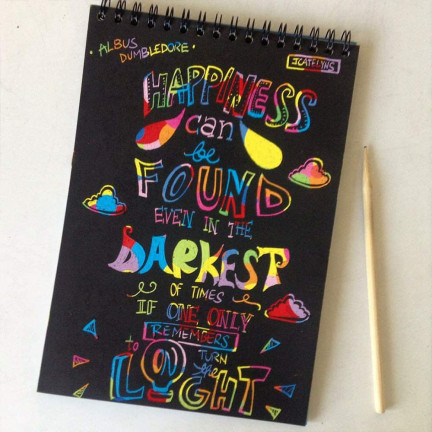 • ALBUS
DUMBLEDORE •
HAPPINESS
can
be
FOUND
EVEN IN THE
DARKEST
OF TIMES
IF ONE ONLY
REMEMBERS
to TURN
the
LIGHT